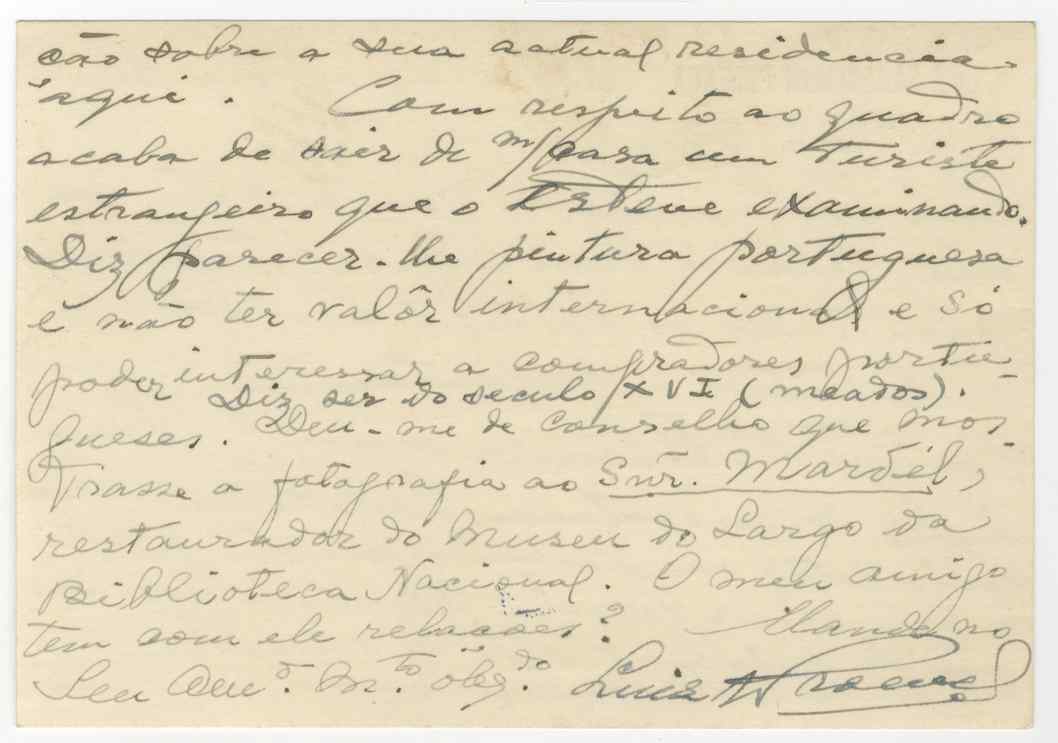 ção sobre a sua actual residencia
aqui. Com respeito ao quadro
acaba de sair de m/casa um turista
estrangeiro que o esteve examinando.
Diz parecer-lhe pintura portuguesa
e não ter valôr internacional e só
poder interessar a compradores portu-
Diz ser do seculo XVI (meados).
gueses. Deu-me de conselho que mos-
trasse a fotografia ao Snr. Mardél,
restaurador do Museu do Largo da
Biblioteca Nacional. O meu amigo
tem com ele relações? Mande no
Seu Am.º M.to obg.do Luis